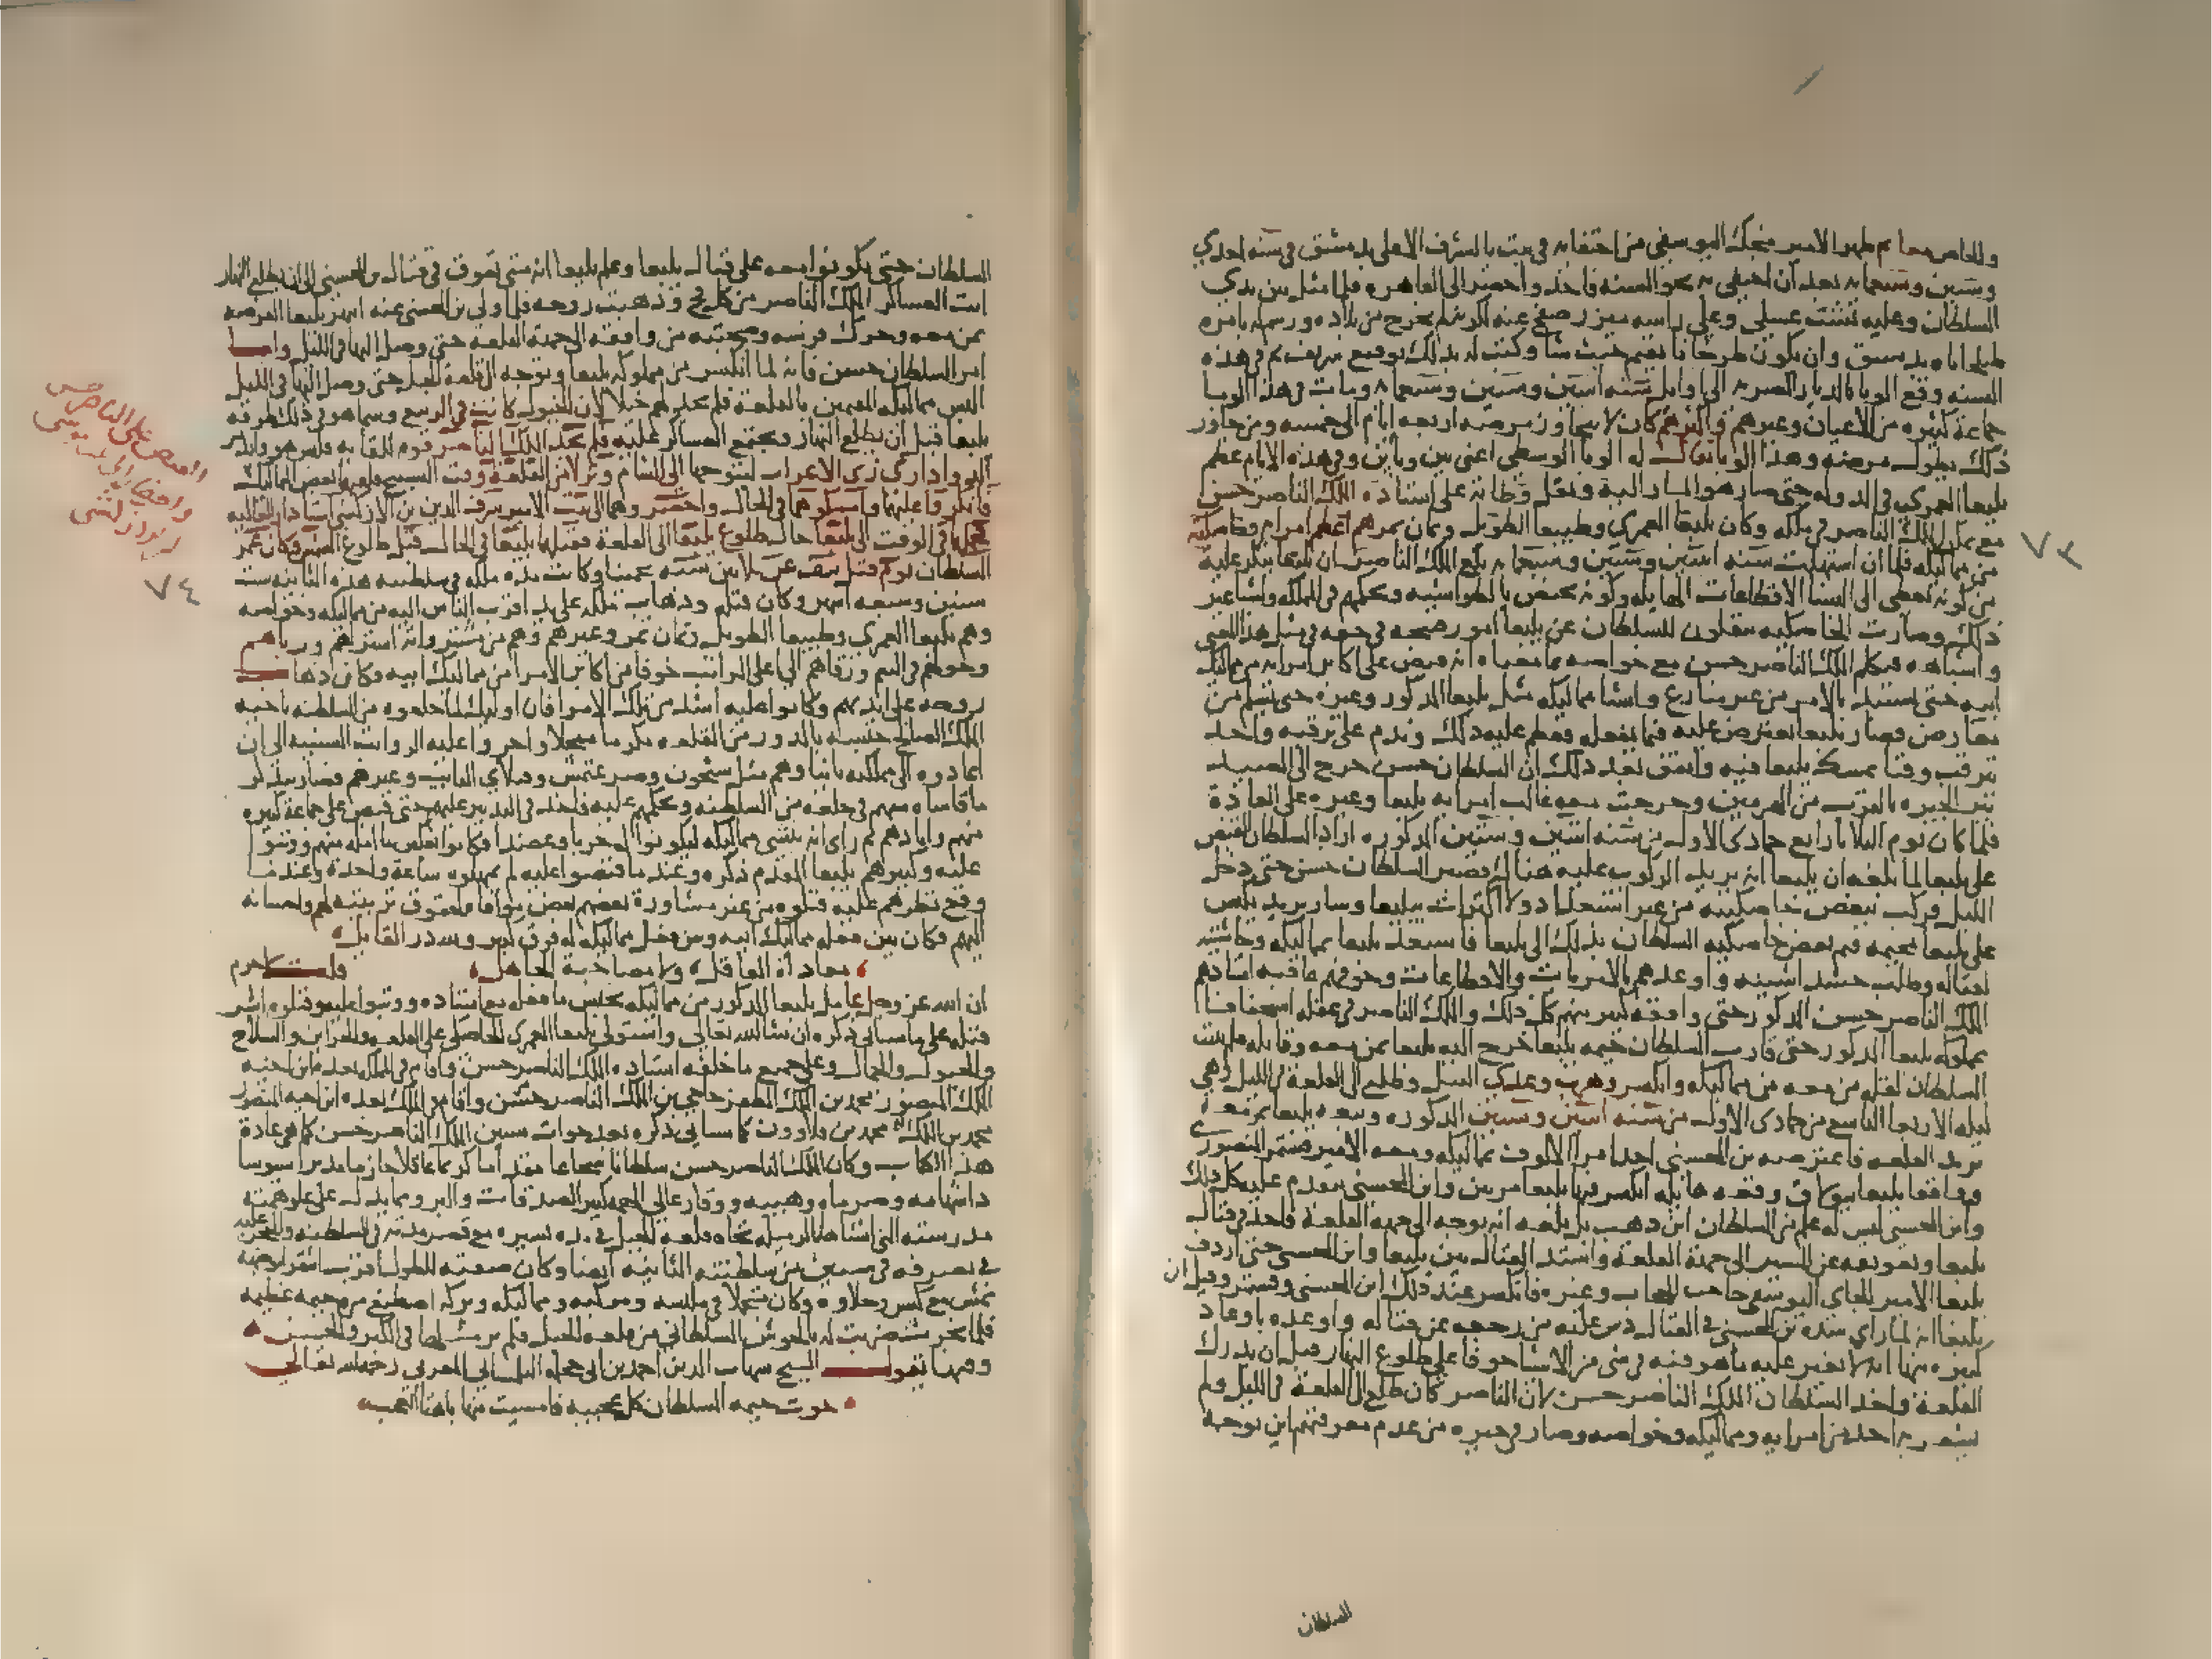 والحاصر معا ثم ظهر الامير منجك اليوسفي من اختفائه في بيت بالشرف الاعلى بدمشق في سنه احدي
وستين وسبعمائه بعد ان اختفى به نحو السنه فاخذ واحضر الى القاهره فلما مثل بين يدي
السلطان وعليه بشت عسلي وعلى راسه ميزر صفح عنه لكونه لم يخرج من بلاده ورسم له بامره
طبلخاناه بدمشق وان يكون طرخانا يقيم حيث شا وكتب له بذلك توقيع شريف ثم في هذه
السنه وقع الوبا بالديار المصريه الى اوايل سنه اثنين وستين وسبعمائه ومات في هذا الوبا
جماعة كثيره من الاعيان وغيرهم واكثرهم كان لا يتجاوز مرضه اربعه ايام الى خمسه ومن جاوز
ذلك يطول مرضه وهذا الوبا يقال له الوبا الوسطي اعني بين وبائين وفي هذه الايام عظم
يلبغا العمري في الدوله حتى صار هو المشار اليه وثقل وطاته على استاذه الملك الناصر حسن
مع تمكن الملك الناصر في ملكه وكان يلبغا العمري وطيبغا الطويل وتمان تمر هم اعظم امرايه وخاصكيته
من مماليكه فلما ان استهلت سنه اثنين وستين وسبعمايه بلغ الملك الناصر ان يلبغا ينكر عليه
من كونه يعطي الى النسا الاقطاعات الهايله وكونه يختص بالطواشيه ويحكمهم في المملكه واشيا غير
ذلك وصارت الخاصكيه ينقلون للسلطان عن يلبغا امور قبيحه في حقه في مثل هذا المعنى
واشباهه فتكلم الملك الناصر حسن مع خواصه بما معناه انه قبض على اكابر امرايه من مماليك
ابيه حتى استبد بالامر من غير منازع وانشا مماليكه مثل يلبغا المذكور وغيره حتى يسلم من
معارض فصار يلبغا يعترض عليه فيما يفعله فعظم عليه ذلك وندم على ترقيه واخذ
يترقب وقتا يمسك يلبغا فيه واتفق بعد ذلك ان السلطان حسن خرج الى الصيد
ببر الجيزه بالقرب من الهرمين وخرجت معه غالب امرايه يلبغا وغيره على العادة
فلما كان يوم الثلاثا رابع جمادى الاولى من سنه اثنين وستين المذكوره اراد السلطان القبض
على يلبغا لما بلغه ان يلبغا انه يريد الركوب عليه هناك فصبر السلطان حسن حتى دخل
الليل فركب ببعض خاصكيته من غير استعداد ولا اكتراث بيلبغا وسار يريد يكبس
على يلبغا بخيمه فنم بعض خاصكيه السلطان بذلك الى يلبغا فاستعد يلبغا بمماليكه وحاشيته
لقتاله وطلب خشداشيته واوعدهم بالامريات والاقطاعات وخوفهم عاقبه استاذهم
الملك الناصر حسن المذكور حتى وافقه كثير منهم كل ذلك والملك الناصر في غفله استخفافا
بمملوكه يلبغا المذكور حتى قارب السلطان خيمه يلبغا خرج اليه يلبغا بمن معه وقاتله فلم يثبت
السلطان لقله من معه من مماليكه وانكسر وهرب وعدى النيل وطلع الى القلعه في الليل وهي
ليله الاربعا التاسع من جمادى الاولى من سنه اثنين وستين المذكوره وتبعه يلبغا بمن معه
يريد القلعه فاعترضه بن المحسني احد امرا الالوف بمماليكه ومعه الامير قشتمر المنصوري
وواقعا يلبغا ببولاق وقعه هايله انكسر فيها يلبغا مرتين وابن المحسني يتقدم عليه كل ذلك
وابن المحسني ليس له علم من السلطان اين ذهب بل بلغه انه توجه الى جهه القلعه فاخذ في قتال
يلبغا وتعويقه عن المسير الى جهة القلعه واشتد القتال بين يلبغا وابن المحسني حتى اردف
يلبغا الامير الجاي اليوسفي حاجب الحجاب وغيره فانكسر عند ذلك ابن المحسني وقشتمر وقيل ان
يلبغا انه لما راي شده بن المحسني في القتال دس عليه من رجعه عن قتاله واوعده باوعاد
كثيره منها انه لا يغير عليه ما هو فيه في شي من الاشيا خوفا على طلوع النهار قبل ان يدرك
القلعه واخذ السلطان الملك الناصر حسن لان الناصر كان طلع الى القلعه في الليل ولم
يشعر به احد من امرايه ومماليكه وخواصه وصار في حيره من عدم معرفتهم اين توجه
السلطان
٧٣
السلطان حتى يكونوا معه على قتال يلبغا وعلم يلبغا انه متى تعوق في قتال بن المحسني الى ان يطلع النهار
اتت العساكر الملك الناصر من كل فج وذهبت روحه فلما ولى بن المحسني عنه انتهز يلبغا الفرصه
بمن معه وحرك فرسه وصحبته من وافقه الى جهة القلعه حتى وصل اليها في الليل واما
امر السلطان حسن فانه لما انكسر من مملوكه يلبغا وتوجه الى قلعة الجبل حتى وصل اليها في الليل
البس مماليكه المقيمين بالقلعه فلم يجد لهم خيلا لان الخيول كانت في الربيع وبينما هو في ذلك طرقه
يلبغا قبل ان يطلع النهار وتجتمع العساكر عليه فلم يجد الملك الناصر قوه للقائه فلبس هو وايدمر
الدوادار زي الاعراب ليتوجها الى الشام ونزلا من القلعه وقت التسبيح فلقيهما بعض المماليك
فانكروا عليهما وامسكوهما في الحال واحضروهما الى بيت الامير شرف الدين بن الازكشي استادار العاليه
فحملهما في الوقت الى يلبغا حال طلوع يلبغا الى القلعه فقتلهما يلبغا في الحال قبل طلوع الشمس وكان عمر
السلطان يوم قتل نيف عن ثلاثين سنه تخمينا وكانت مده ملكه في سلطنته هذه الثانيه ست
سنين وسبعه اشهر وكان قتله وذهاب ملكه على يد اقرب الناس اليه من مماليكه وخواصه
وهم يلبغا العمري وطيبغا الطويل وتمان تمر وغيرهم وهم من مشترواته اشتراهم ورباهم
وخولهم في النعم ورقاهم الى اعلى المراتب خوفا من اكابر الامرا من مماليك ابيه وكان ذهاب
روحه على ايديهم وكانوا عليه اشد من تلك الامرا فان اوليك لما خلعوه من السلطنه باخيه
الملك الصالح حبسوه بالدور من القلعه مكرما مبجلا واجروا عليه الرواتب السنيه الى ان
اعادوه الى مملكته ثانيا وهم مثل شيخون وصرغتمش وقبلاي النايب وغيرهم فصار يتذكر
ما قاساه منهم في خلعه من السلطنه وتحكمهم عليه فاخذ في التدبير عليهم حتى قبض على جماعه كثيره
منهم وابادهم ثم راى انه ينشي مماليكه ليكونوا له حزبا وعضدا فكانوا بعكس ما امله منهم ووثبوا
عليه وكبيرهم يلبغا المقدم ذكره وعند ما قبضوا عليه لم يمهلوه ساعة واحدة وعند ما
وقع نظرهم عليه قتلوه من غير مشاورة بعضهم لبعض موافاه لحقوق تربيته لهم واحسانه
اليهم فكان بين فعله مماليك ابيه وبين فعل مماليكه له فرق كبير ولله در القايل
معاداة العاقل ولا مصاحبة الجاهل قلت لا جرم
ان الله عز وجل عامل يلبغا المذكور من مماليكه بجنس ما فعله مع استاذه ووثبوا عليه وقتلوه اشر
قتله على ما سياتي ذكره ان شا الله تعالى واستولى يلبغا العمري الخاصكي على القلعه والخزاين والسلاح
والخيول والجمال وعلى جميع ما خلفه استاذه الملك الناصر حسن واقام في الملك بعده ابن اخيه
الملك المنصور محمد بن الملك المظفر حاجي بن الملك الناصر
محمد بن الملك محمد بن قلاوون كما سياتي ذكره بعد حوادث سنين الملك الناصر حسن كما هي عادة
هذا الكتاب وكان الملك الناصر حسن سلطانا شجاعا مقداما كريما عاقلا حازما مدبرا سيوسا
ذا شهامه وصرامه وهيبه ووقار عالي الهمه كثير الصدقات والبر ومما يدل على علو همته
مدرسته التي انشاها بالرميله تجاه قلعه الجبل في مده يسيره مع قصر مدته في السلطنه والحجر عليه
في تصرفه في سنين من سلطنته الثانيه ايضا وكان صفته للطول اقرب اشقر
نمش مع كيس وحلاوه وكان متجملا في ملبسه ومركبه ومماليكه وبركه اصطنع مره خيمه عظيمه
فلما نجزت ضربت له بالحوش السلطاني من قلعه الجبل فلم ير مثلها في الكبر والحسن
وفيها يقول الشيخ شهاب الدين احمد بن ابي حجله التلمساني المغربي رحمه الله تعالى
حوت خيمه السلطان كل عجيبه فامسيت منها باهتا اتعجب
٧٤